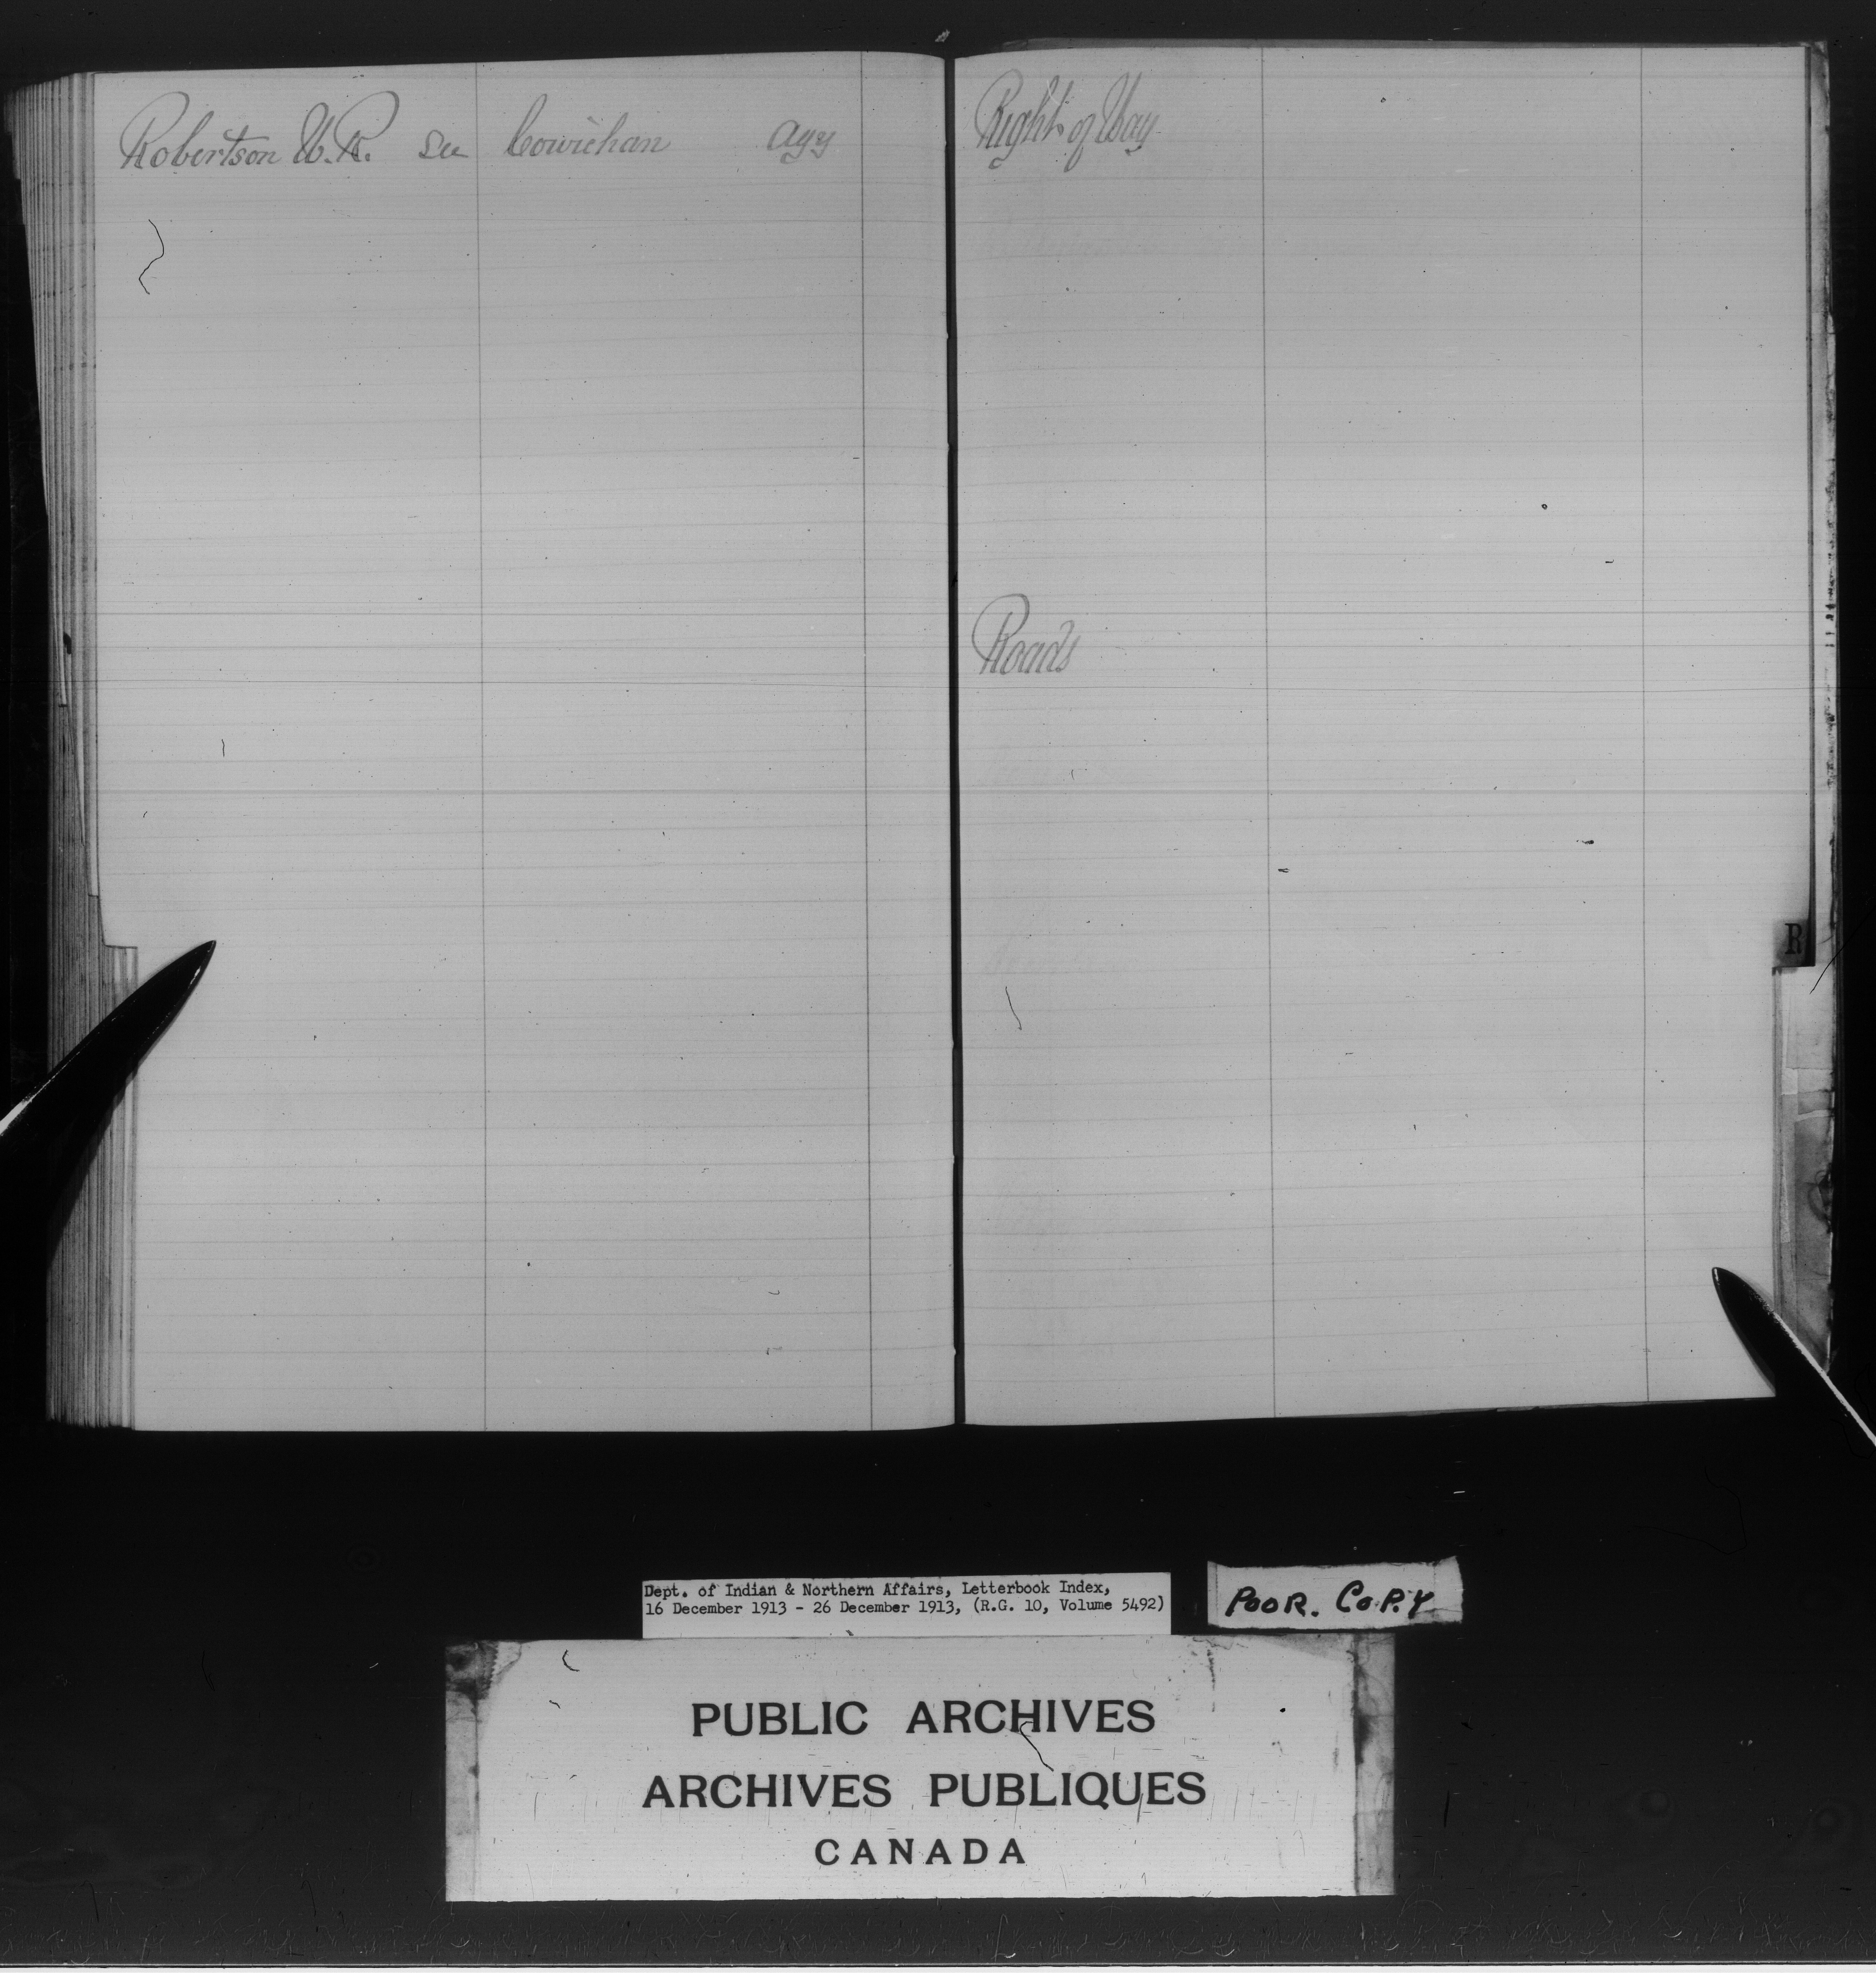 Robertson W.R. see Cowichan Agy
Right of Way
Roads
R
Dept. of Indian & Northern Affairs, Letterbook Index,
16 December 1913 - 26 December 1913, (R.G. 10, Volume 5492)
POOR. COPY
PUBLIC ARCHIVES
ARCHIVES PUBLIQUES
CANADA